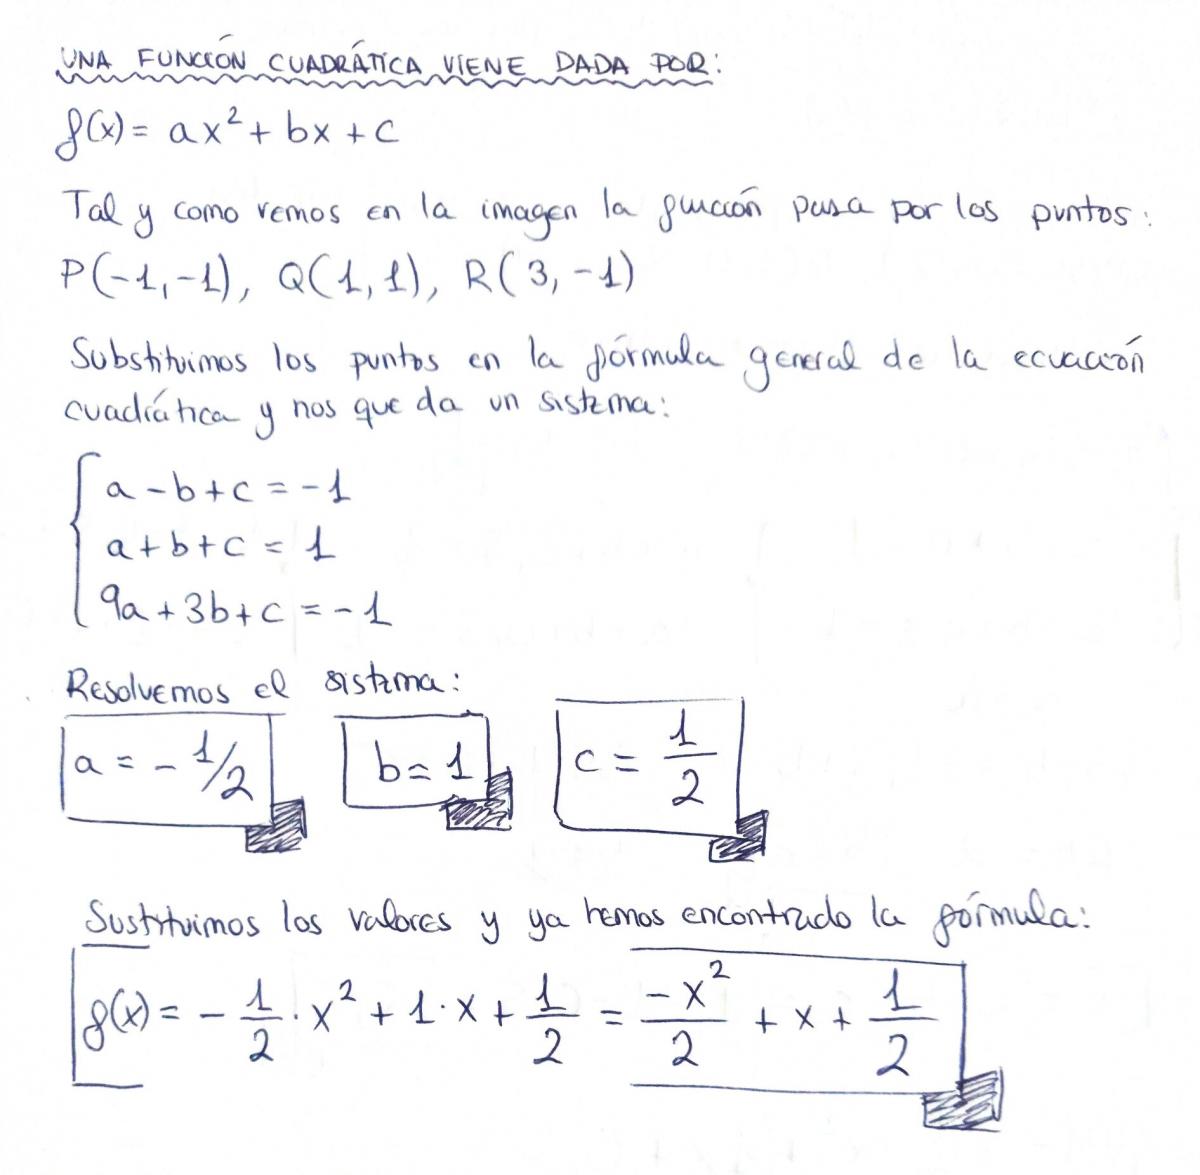 UNA FUNCIÓN CUADRÁTICA VIENE DADA POR:
f(x) = ax² + bx + c
Tal y como vemos en la imagen la función pasa por los puntos:
P(-1,-1), Q(1,1), R(3,-1)
Substituimos los puntos en la fórmula general de la ecuación
cuadrática y nos que da un sistema:
a - b + c = -1
a + b + c = 1
9a + 3b + c = -1
Resolvemos el sistema:
a = - 1/2 b = 1 c = 1/2
Sustituimos los valores y ya hemos encontrado la fórmula:
f(x) = - 1/2 · x² + 1 · x + 1/2 = -x²/2 + x + 1/2